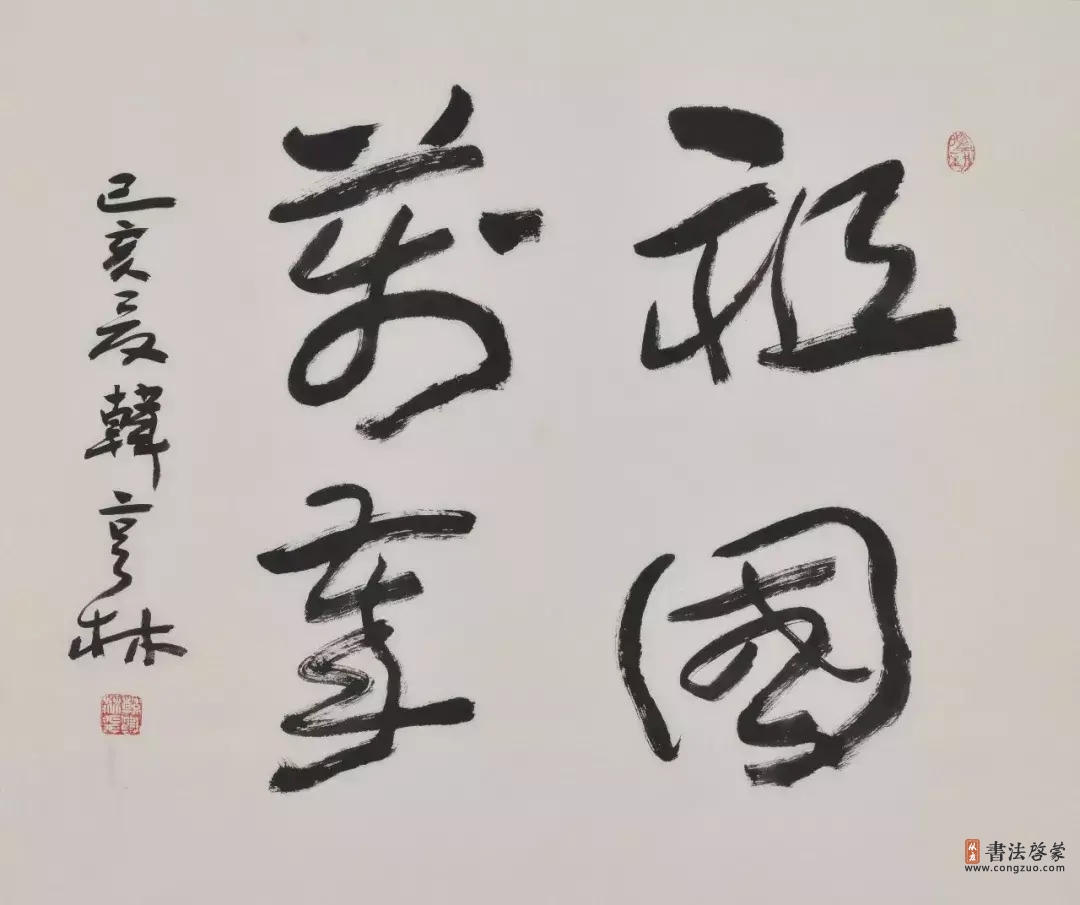 祖國
萬歲
己亥夏韓亨林
書法啓蒙
www.congzuo.com